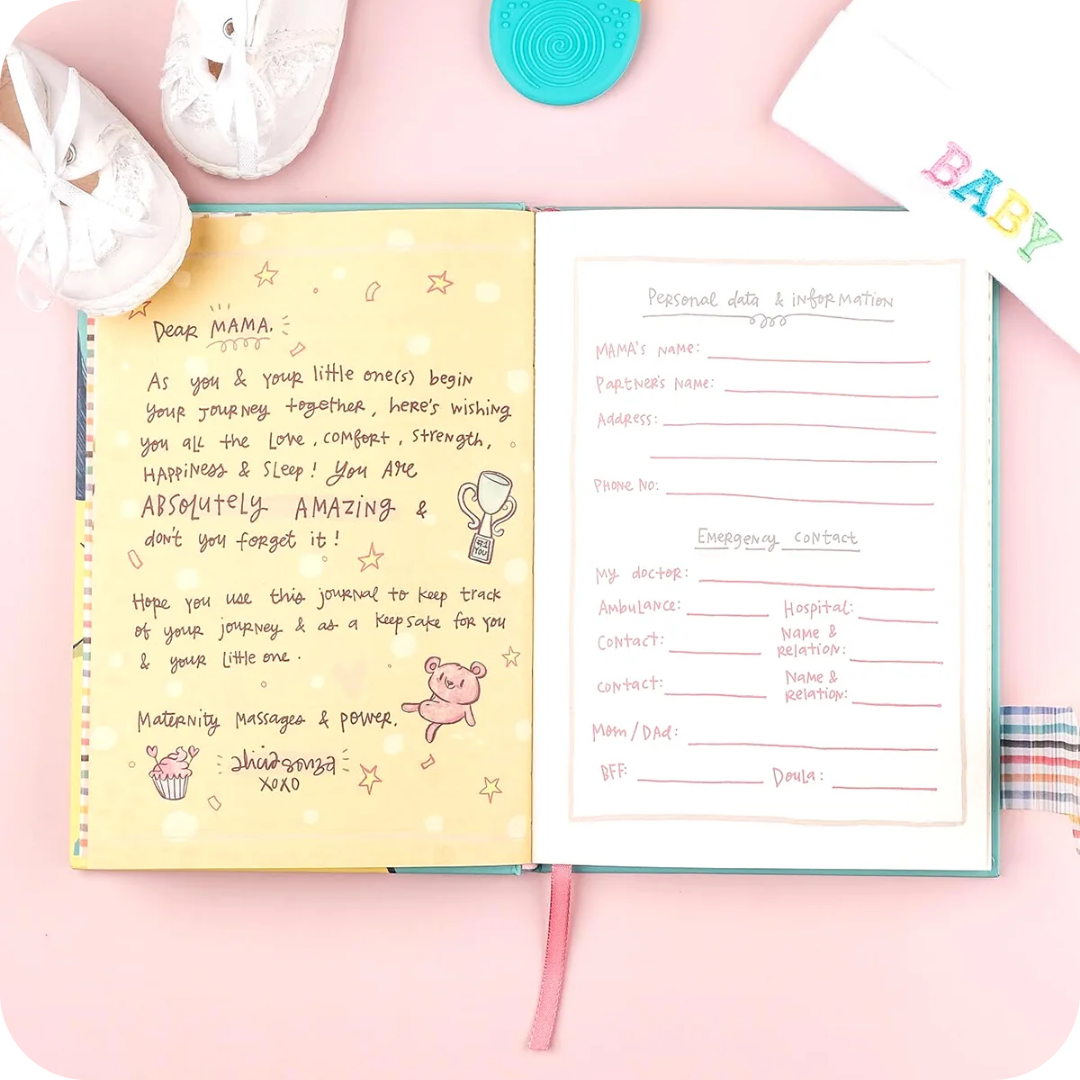 BABY
Dear MAMA,
As you & your little one(s) begin
your journey together, here's wishing
you all the love, comfort, strength,
HAPPINESS & SLEEP! You ARE
ABSOLUTELY AMAZING &
don't you forget it!
#1
YOU
Hope you use this journal to keep track
of your journey & as a keepsake for you
& your little one.
Maternity Massages & power,
aliciasouza
XOXO
Personal data & information
MAMA's Name:
Partner's Name:
Address:
Phone No:
Emergency contact
My doctor:
Ambulance: Hospital:
Contact: Name &
Relation:
Contact: Name &
Relation:
Mom/Dad:
BFF: Doula: